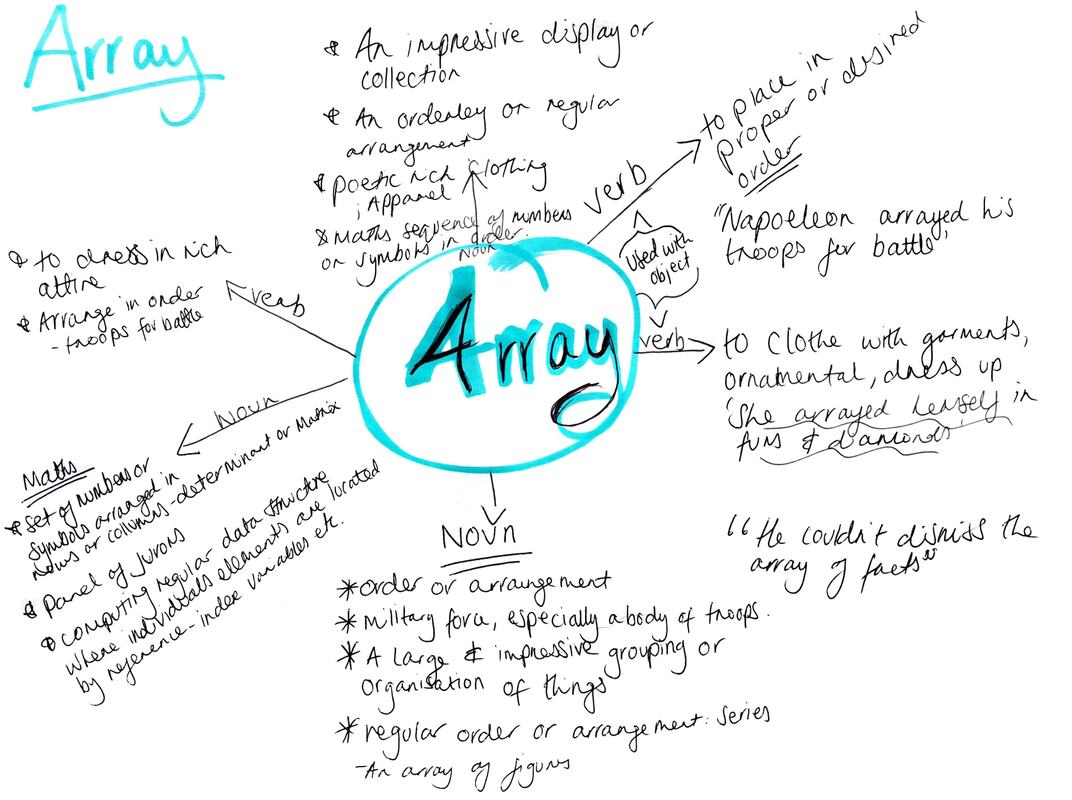 Array
* An impressive display or
collection
* An orderley or regular
arrangement
* Poetic rich clothing
; Apparel
* Maths sequence of numbers
or symbols in order.
Noun
verb
to place in
proper or desired
order
"Napoeleon arrayed his
troops for battle"
Used with
object
verb
to clothe with garments,
ornamental, dress up
'She arrayed herself in
furs & diamonds'
"He couldn't dismiss the
array of facts"
* to dress in rich
attire
* Arrange in order
- troops for battle
verb
Array
Noun
Maths
* set of numbers or
symbols arranged in
rows or columns - determinant or Matrix
* Panel of jurors
* computing regular data structure
where individuals elements are located
by reference - index variables etc.
Noun
* order or arrangement
* Military force, especially a body of troops.
* A large & impressive grouping or
organisation of things
* regular order or arrangement: series
- An array of figures